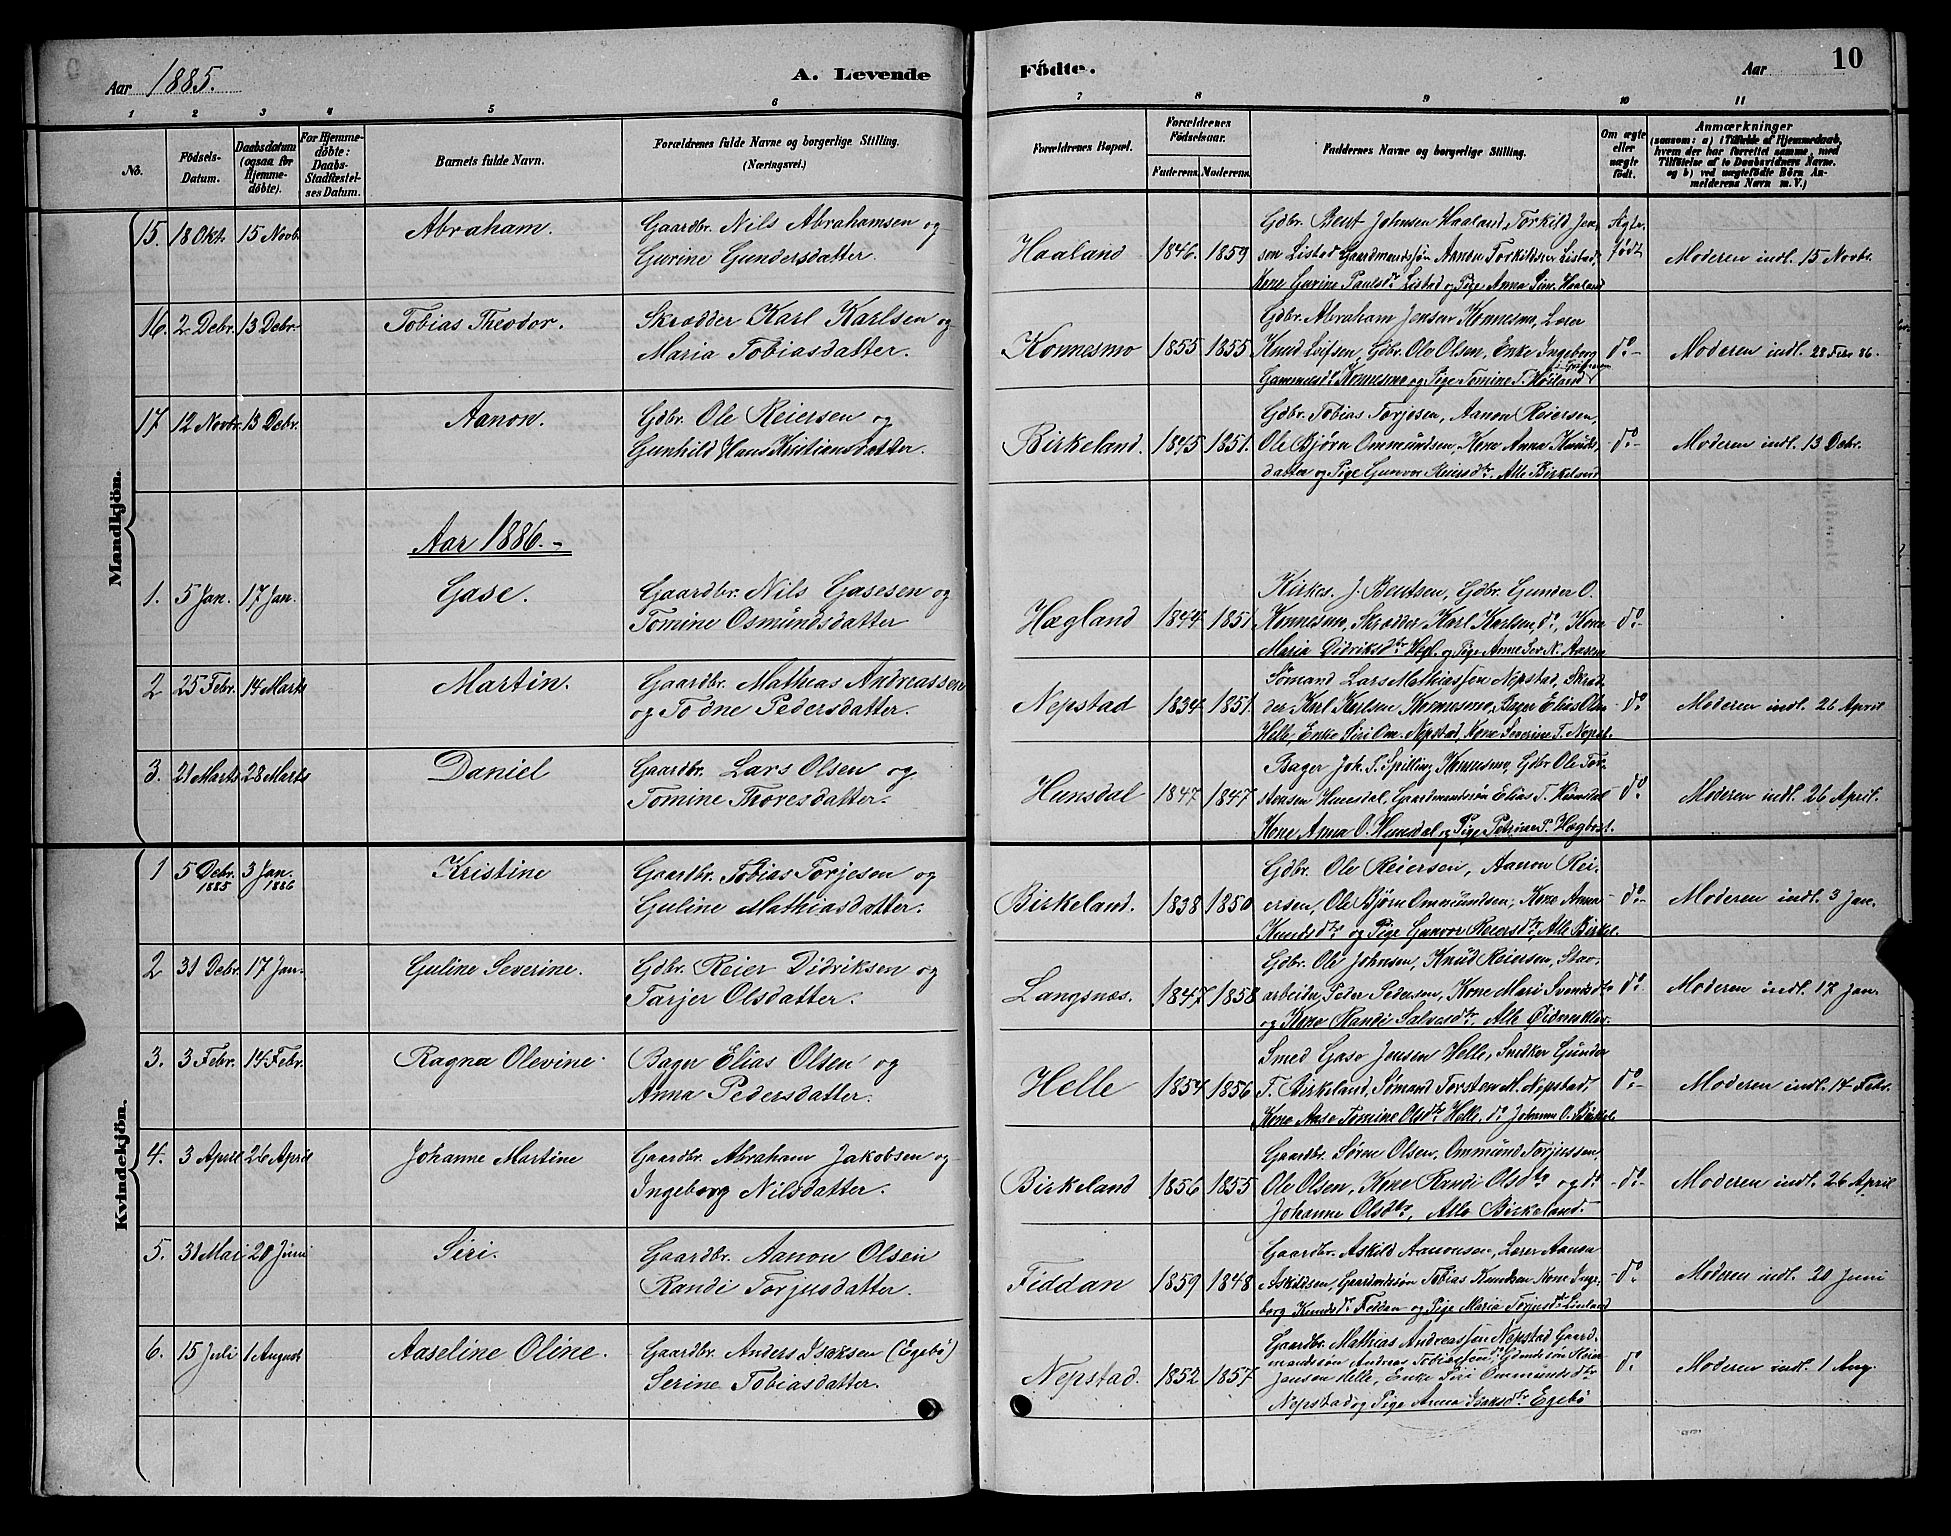 Aar 1885.
A. Levende
Fødte.
Aar
10
1 2 3 4 5 6 7 8 9 10 11
No.
Fødsels-Datum.
Daabsdatum (ogsaa for Hjemme-døbte).
For Hjemme-døbte: Daabs-Stadfæstel-ses Datum.
Barnets fulde Navn.
Forældrenes fulde Navne og borgerlige Stilling. (Næringsvei.)
Forældrenes Bopæl.
Forældrenes Fødselsaar.
Faderens. Moderens.
Faddernes Navne og borgerlige Stilling.
Om ægte eller uægte født.
Anmærkninger
(saasom: a) i Tilfælde af Hjemmedaab, hvem der har forrettet samme, med Tilføielse af to Daabsvidners Navne. og b) ved uægtefødte Børn An-melderens Navn m. V.)
Mandkjøn.
15. 18 Okt. 15 Novb. Abraham. Gaardbr. Nils Abrahamsen og
Gurine Gundersdatter.
Haaland 1846. 1859
Gdbr. Bent Johnsen Haaland, Torkild Jen-
sen Listad Gaardmandssøn Aanon Torkildsen Listad,
Kone Gurine Paulsdr Listad og Pige Anna Haaland
Ægte født
Moderen indl. 15 Novbr.
16. 2 Debr. 13 Debr. Tobias Theodor. Skrædder Karl Karlsen og
Maria Tobiasdatter.
Konnesmo 1855 1855
Gdbr. Abraham Jensen Konnesmo, Lærer
Knud Leifsen, Gdbr. Ole Olsen, Enke Ingeborg
Gammelsdr Konnesmo og Pige Tomine T. Høiland
do
Moderen indl. 28 Febr 86.
17 12 Novbr. 13 Debr. Aanon. Gdbr. Ole Reiersen og
Gunhild Hans Kristiansdatter.
Birkeland. 1845 1851.
Gdbr. Tobias Torjesen, Aanon Reiersen,
Ole Bjørn Ommundsen, Kone Anna Knuds-
datter og Pige Gunvor Reiersdr. Alle Birkeland
do
Moderen indl. 13 Debr.
Aar 1886.
1. 5 Jan. 17 Jan. Gase. Gaardbr. Nils Gasesen og
Tomine Osmundsdatter
Hægland 1844 1851
Kirkes. J. Bentsen, Gdbr. Gunder O.
Konnesmo, Skrædder Karl Karlsen do, Kone
Maria Didriksdtr Hegl. og Pige Anne N. Aasen
do
2 25 Febr. 14 Marts Martin. Gaardbr. Mathias Andreassen
og Todne Pedersdatter.
Nepstad 1834 1851.
Sømand Lars Mathiassen Nepstad, Skræd-
der Karl Karlsen Konnesmo, Bager Elias Olsen
Helle, Enke Siri Om. Nepstad, Kone Severine T. Nepst.
do
Moderen indl. 26 April
3. 21 Marts 28 Marts Daniel Gaardbr. Lars Olsen og
Tomine Thoresdatter.
Hunsdal 1847 1847
Bager Joh. T. Spilling Konnesmo, Gdbr. Ole Tor-
Hunsdal, Gaardmandssøn Elias T. Hunsdal
Kone Anna O. Hunsdal og Pige Petrine P. Hægbost.
do
Moderen indl. 26 April.
Kvindekjøn.
1 5 Debr. 1885 3 Jan. 1886 Kristine Gaardbr. Tobias Torjesen og
Guline Mathiasdatter.
Birkeland. 1838 1850
Gdbr. Ole Reiersen, Aanon Rei-
ersen, Ole Bjørn Ommundsen, Kone Anna
Knudsdtr og Pige Gunvor Reiersdtr, Alle Birkel.
do
Moderen indl. 3 Jan.
2 31 Debr. 17 Jan. Guline Severine. Gdbr. Reier Didriksen og
Tarjer Olsdatter.
Langsnæs. 1847 1858
Gdbr. Ole Johnsen, Knud Reiersen, Stav-
arbeider Peder Pedersen, Kone Mari Svendsdtr
og Kone Randi Salvesdtr, Alle Øidnesklev.
do
Moderen indl. 17 Jan.
3. 3 Febr. 14 Febr. Ragna Olevine. Bager Elias Olsen og
Anna Pedersdatter.
Helle 1854 1856
Smed Gase Jensen Helle, Snedker Gunder
T. Birkeland, Sømand Torsten M. Nepstad,
Kone Aase Tomine Olsdtr Helle, do Johanne O. Birkel.
do
Moderen indl. 14 Febr.
4. 3 April 26 April Johanne Martine Gaardbr. Abraham Jakobsen og
Ingeborg Nilsdatter.
Birkeland 1856 1855
Gaardbr. Søren Olsen, Ommund Torjussen,
Ole Olsen, Kone Randi Olsdtr og do
Johanne Olsdtr, Alle Birkeland.
do
Moderen indl. 26 April
5. 31 Mai 20 Juni Siri. Gaardbr. Aanon Olsen
Randi Torjusdatter.
Fiddan 1859 1848
Gaardbr. Askild Aanonsen, Lærer Aanon
Askildsen, Gaardmdssøn Tobias Knudsen Kone Inge-
borg Knudsdr Fiddan og Pige Maria Torjusdr Lindland
do
Moderen indl. 20 Juni
6. 15 Juli 1 August Aaseline Oline. Gaardbr. Anders Isaksen (Egebø)
Serine Tobiasdatter.
Nepstad. 1852 1857
Gaardbr. Mathias Andreassen Nepstad Gaard-
mandssøn Andreas Tobiassen do, Gdmdssøn Reier
Jensen Helle, Enke Siri Ommundsdtr
Nepstad og Pige Anna Isaksdtr Egebø
do
Moderen indl. 1 Aug.